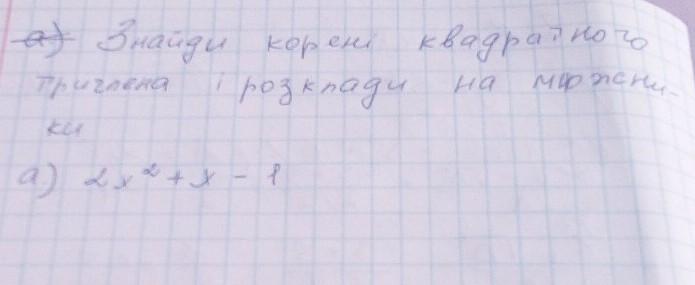 а) Знайди корені квадратного
тричлена і розклади на множни-
ки
а) 2x² + x - 1